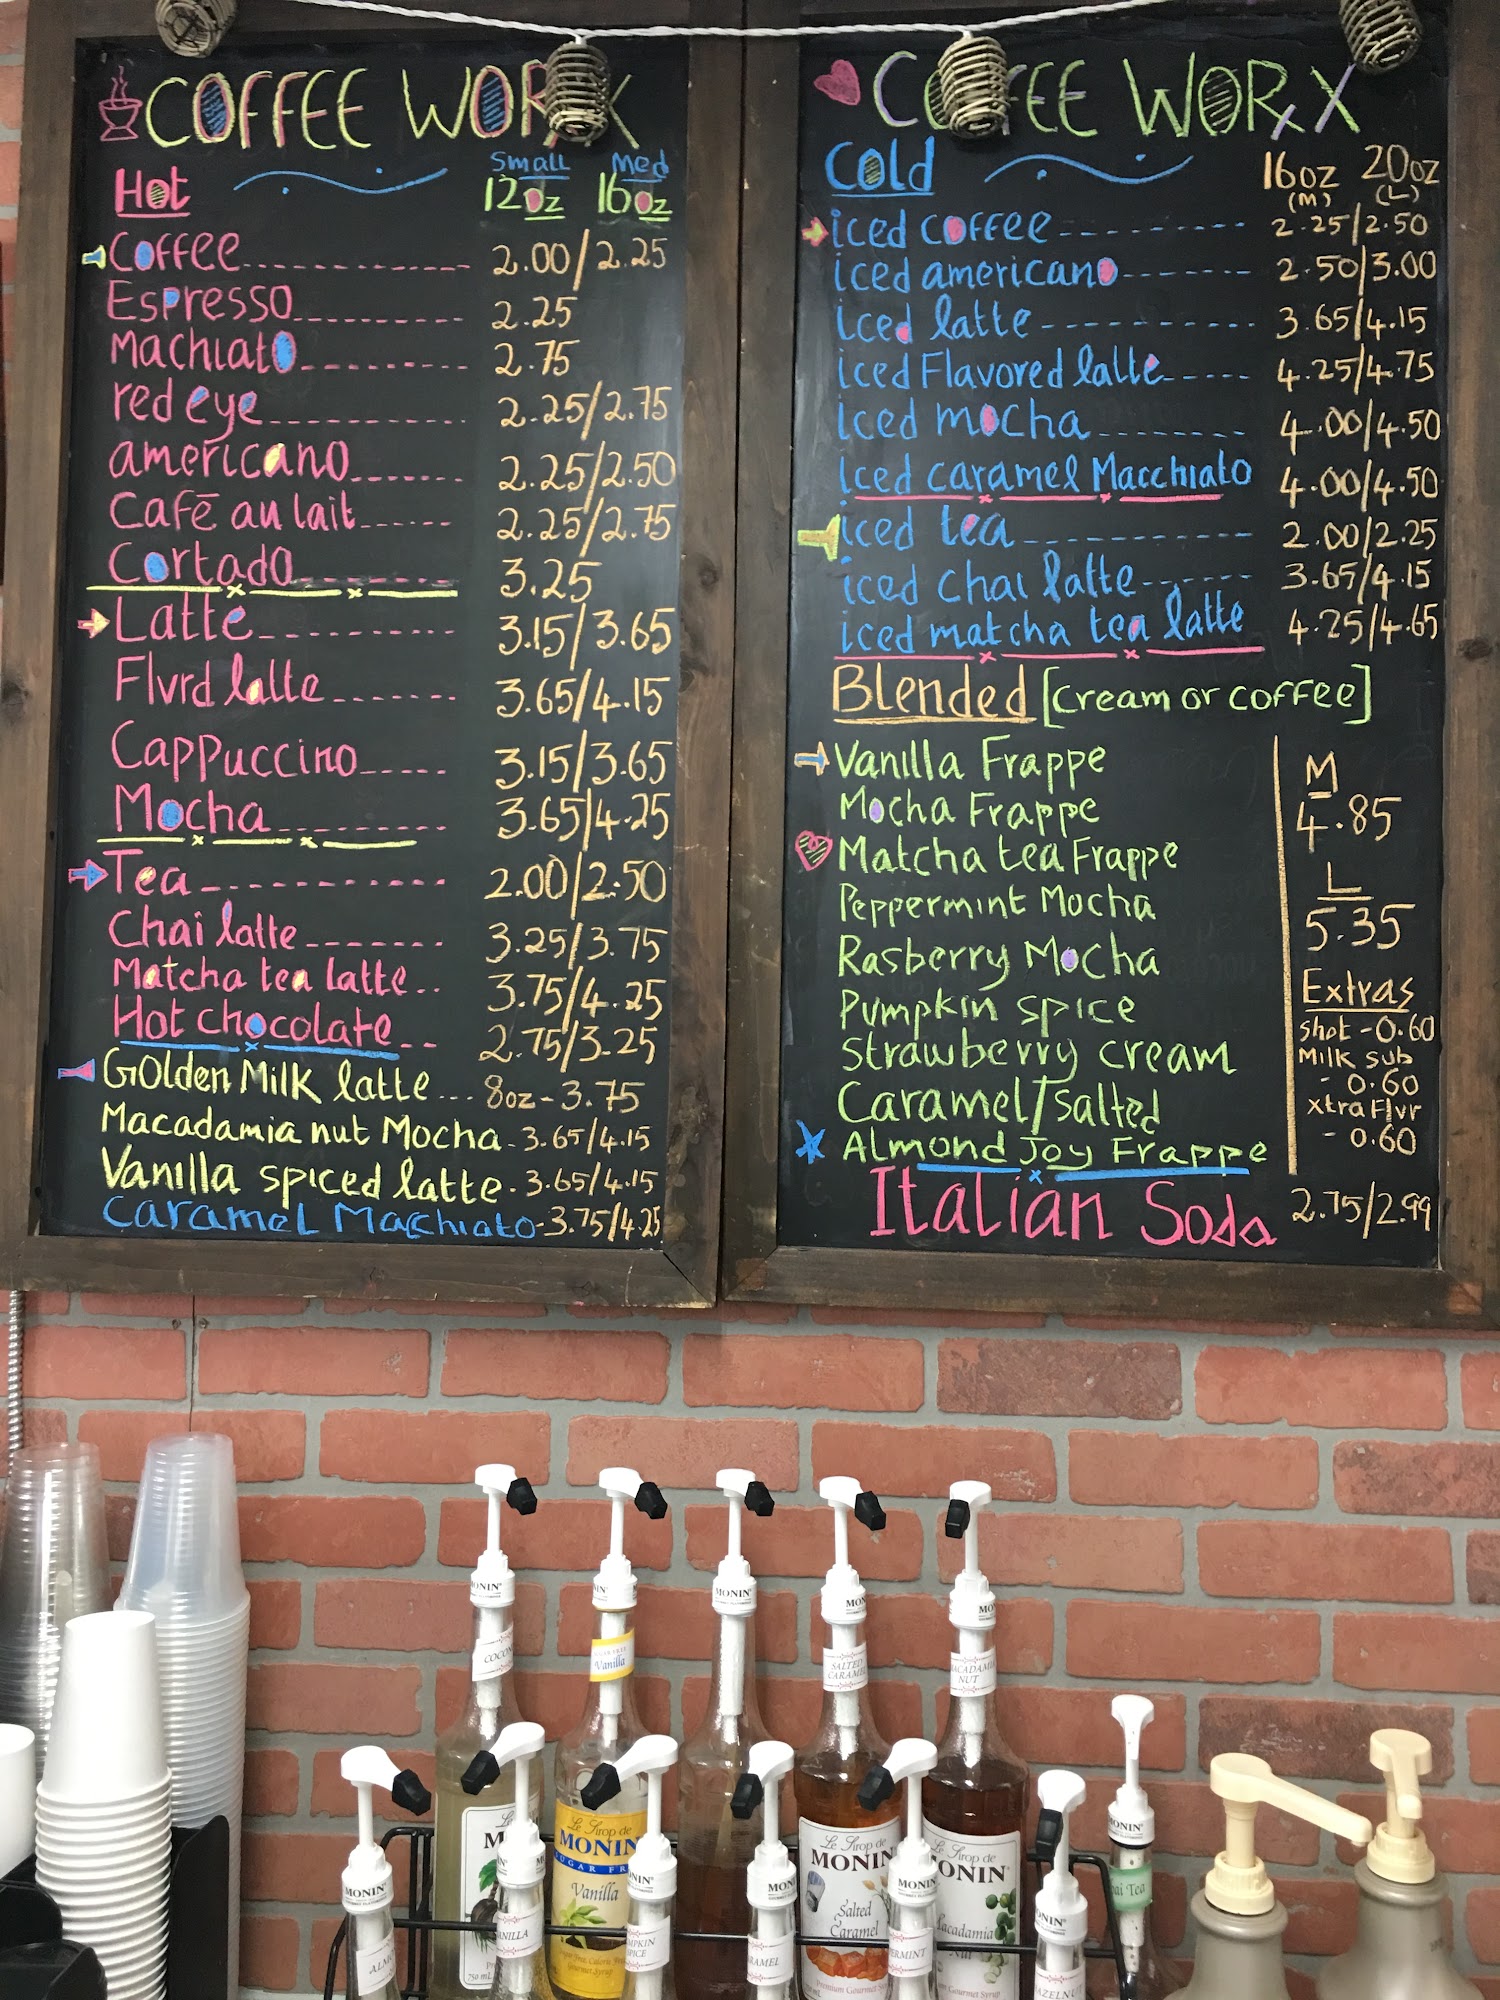 COFFEE WORX
Hot
Small Med
12oz 16oz
Coffee 2.00/2.25
Espresso 2.25
Machiato 2.75
red eye 2.25/2.75
americano 2.25/2.50
Café au lait 2.25/2.75
Cortado 3.25
Latte 3.15/3.65
Flvrd latte 3.65/4.15
Cappuccino 3.15/3.65
Mocha 3.65/4.25
Tea 2.00/2.50
Chai latte 3.25/3.75
Matcha tea latte 3.75/4.25
Hot chocolate 2.75/3.25
Golden Milk latte 8oz-3.75
Macadamia nut Mocha-3.65/4.15
Vanilla spiced latte-3.65/4.15
Caramel Macchiato-3.75/4.25
COFFEE WORX
Cold
16oz 20oz
(M) (L)
iced coffee 2.25/2.50
iced americano 2.50/3.00
iced latte 3.65/4.15
iced Flavored latte 4.25/4.75
iced mocha 4.00/4.50
iced caramel Macchiato 4.00/4.50
iced tea 2.00/2.25
iced chai latte 3.65/4.15
iced matcha tea latte 4.25/4.65
Blended [cream or coffee]
Vanilla Frappe
Mocha Frappe
Matcha tea Frappe
Peppermint Mocha
Rasberry Mocha
Pumpkin spice
strawberry cream
Caramel/salted
Almond Joy Frappe
M
4.85
L
5.35
Extras
shot-0.60
Milk sub
-0.60
xtra Flvr
-0.60
Italian Soda 2.75/2.99
MONIN
MONIN
MONIN
SALTED
CARAMEL
NUT
Vanilla
Le Sirop de
MONIN
Vanilla
Le Sirop de
MONIN
Salted
Caramel
Premium Gourmet Syrup
Le Sirop de
Nut
MONIN
MONIN
MONIN
SPICE
Tea